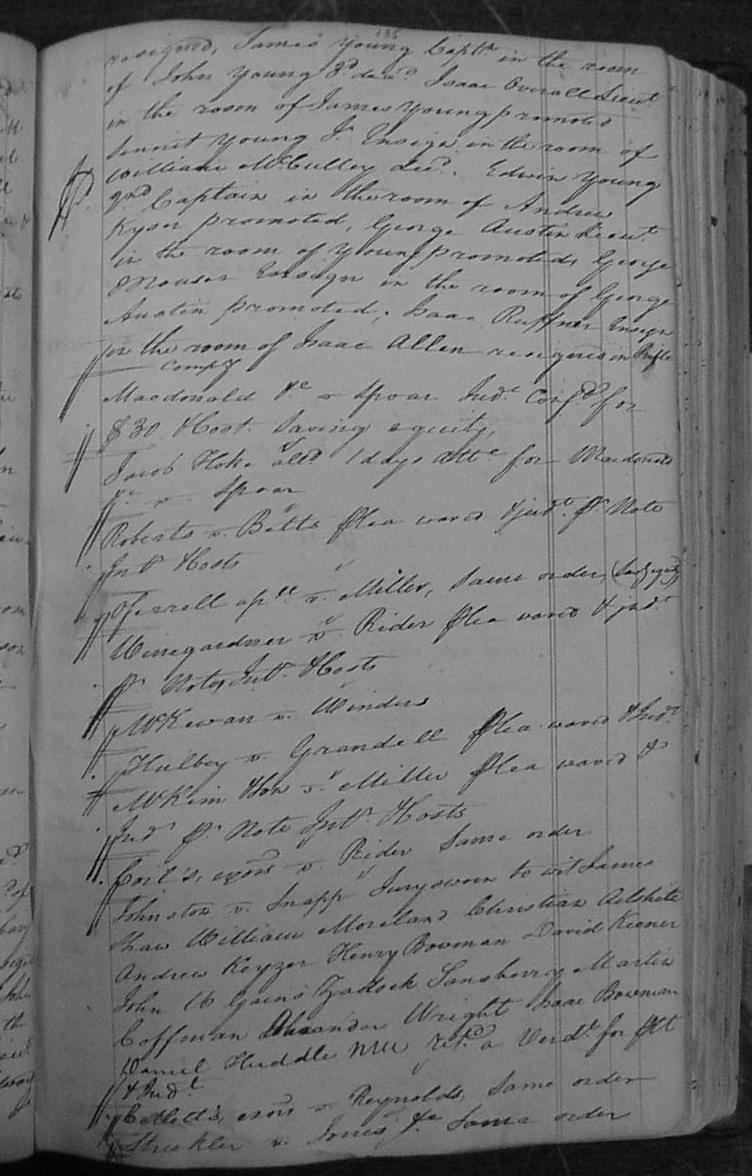 resigned, James Young Captn in the room
of John Young 3d decd Isaac Overall Lieut
in the room of James Young promoted
Young Jr Ensign in the room of
William McCulley decd. Edwin Young
Captain in the room of Andrew
Kyser promoted, George Austin Lieut.
in the room of Young promoted, George
Mouser Ensign in the room of George
Austin promoted, Isaac Ruffner Ensign
in the room of Isaac Allen resigned in Rifle
Compy
Macdonald &c v Spoar Judt Confd for
$30 &Cost. Saving equity,
Jacob Hoke alld 1 days attce for Macdonald
&c v. Spoar
Roberts v. Betts plea waved &judt pr Note
Intt &Costs
Oferrell v. Miller, Same order,
Winegardner v. Rider plea waved & judt
pr Note, Intt &Costs
McKewan v. Winders
Hulbey v. Grandell plea waved &Judt
McKim &Son v. Miller plea waved &
Judt pr Note Intt &Costs
exors v. Rider Same order
Johnston v. Snapp Jury sworn to wit James
Shaw William Moreland Christian
Andrew Keyzer Henry Bowman David Keener
John W Gains Zadock Sansberry Martin
Coffman Alexander Wright Isaac Bowman
Daniel Huddle retd a Verdt for Plt
&Judt
Catlett's, exors v Reynolds, Same order
Strickler v. Jones &c Same order